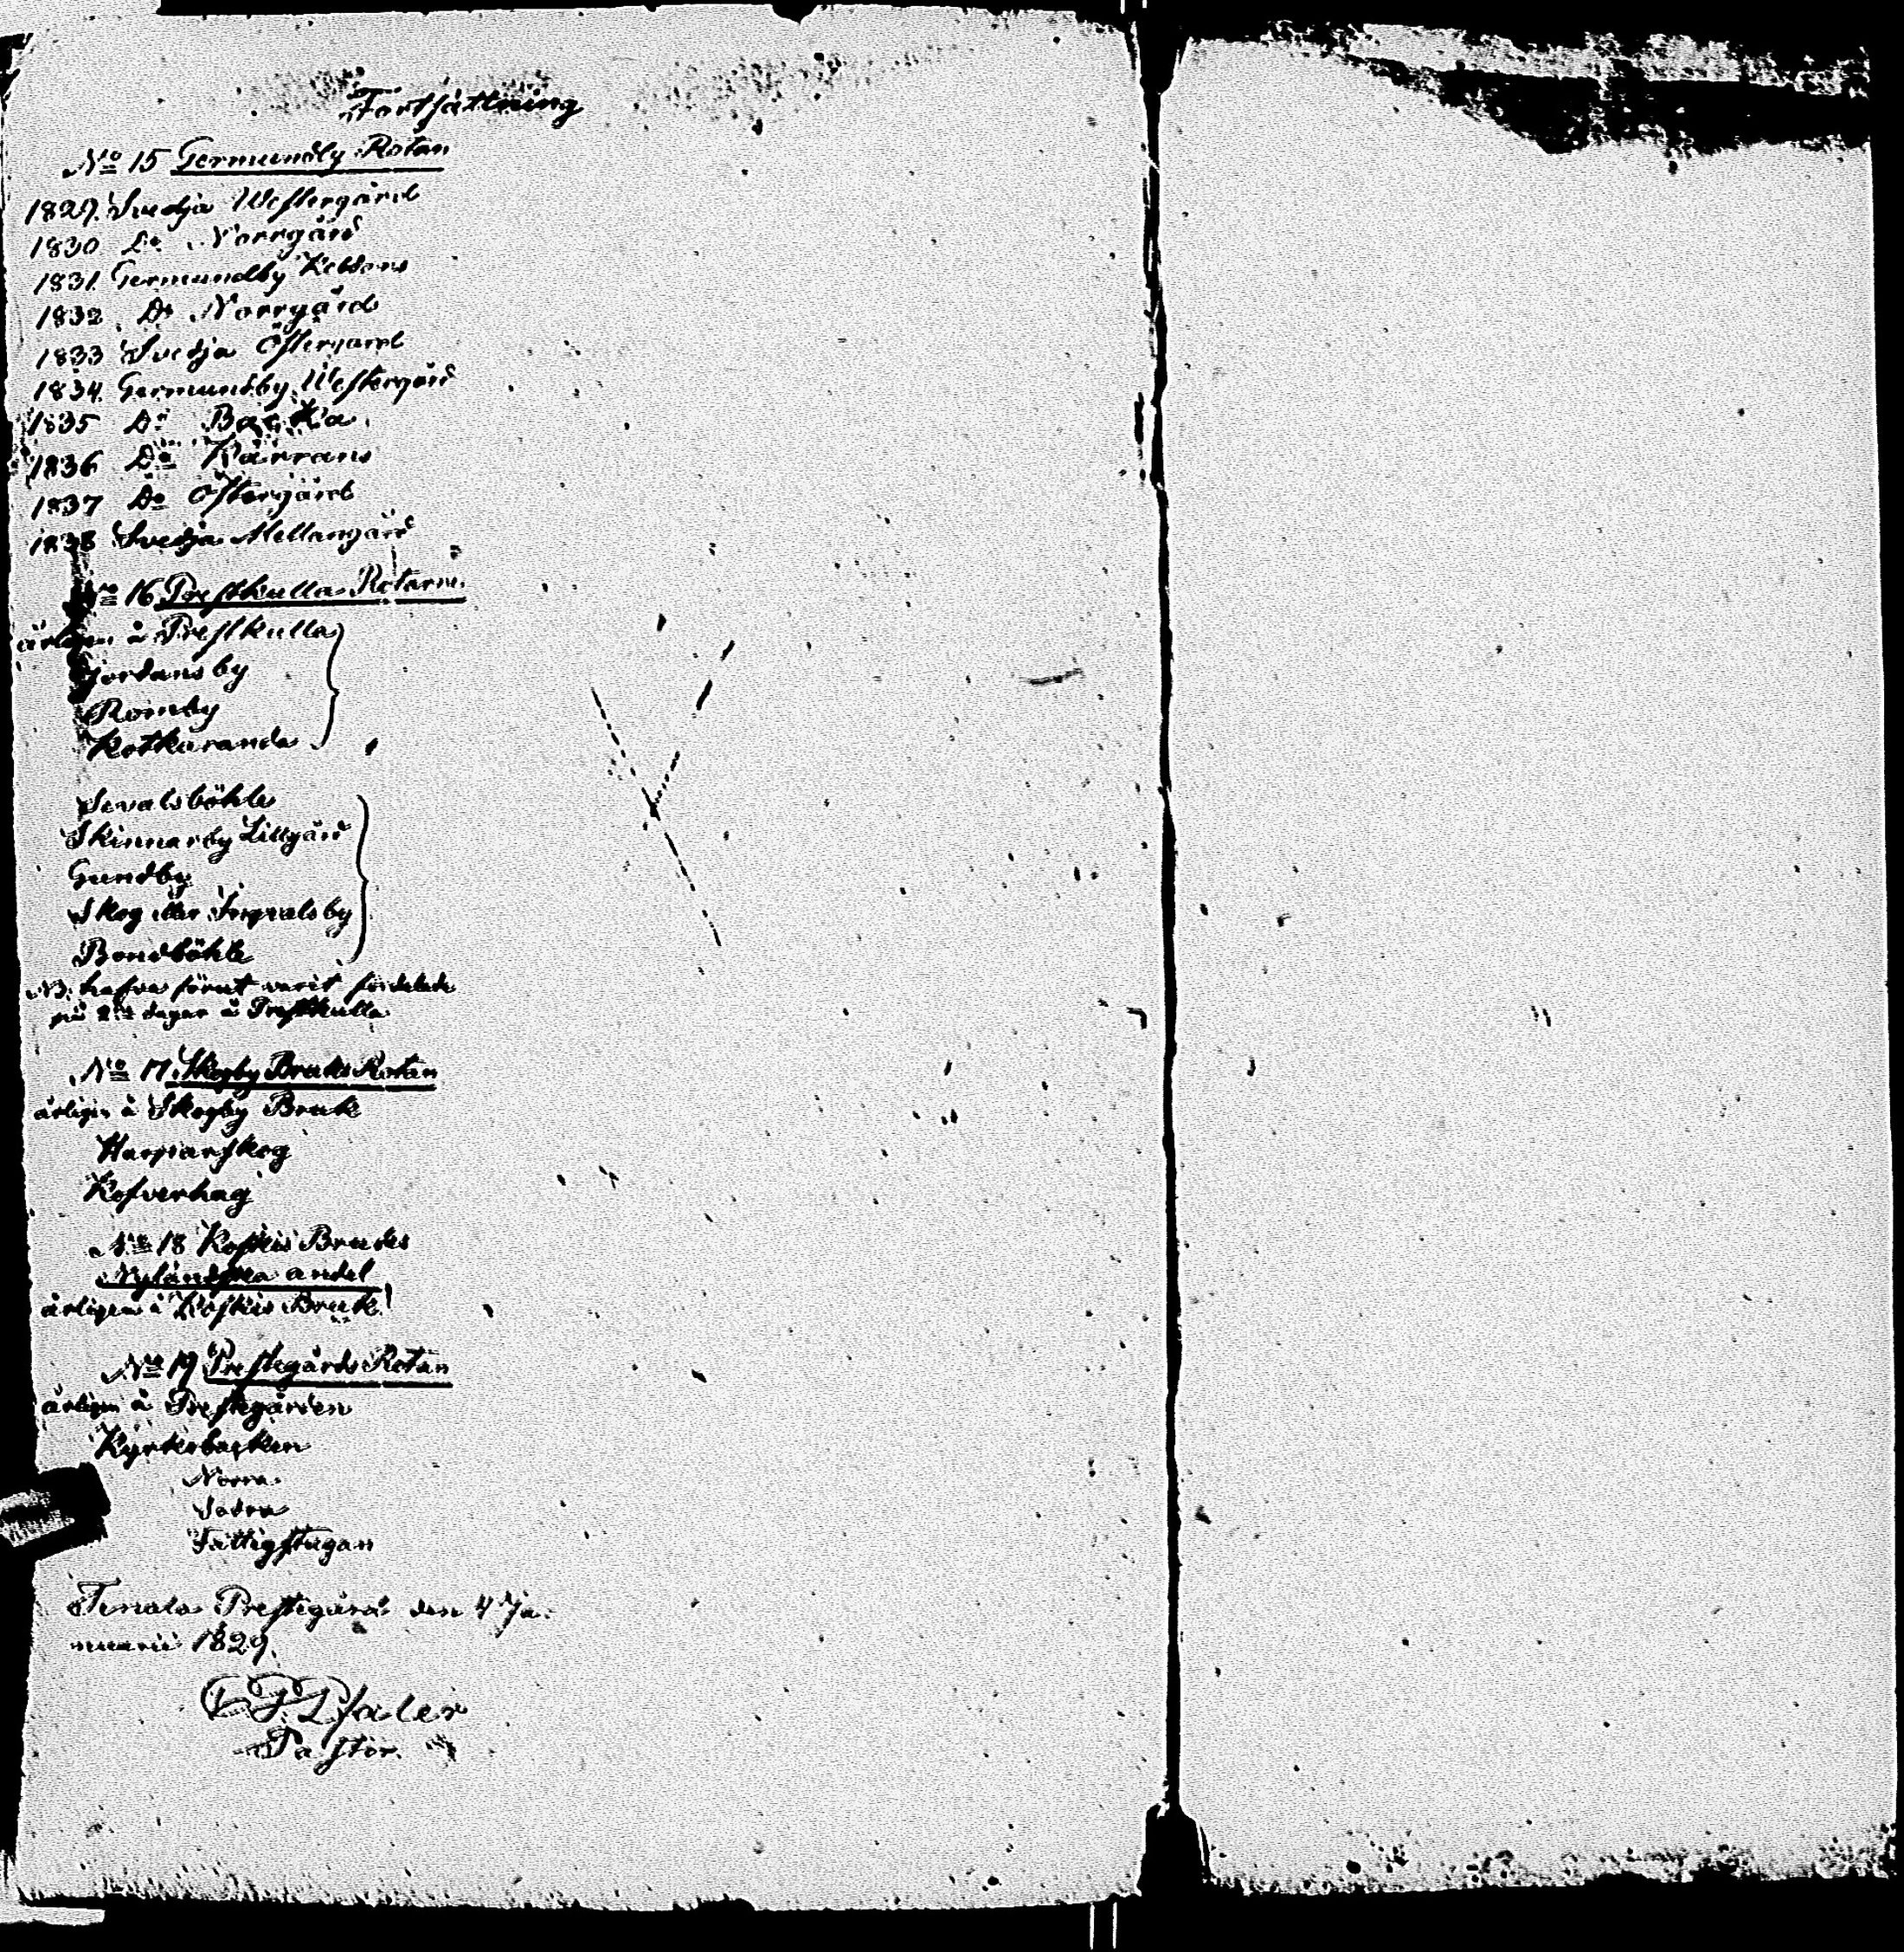 Fortsättning
No 15 Germundby Rotan
1829. Svedja Westergård
1830 Do Norrgård
1831 Germundby Kebbons
1832 Do Norrgård
1833 Svedja Östergård
1834 Germundby Westergård
1835 Do Backa
1836 Do Kärrans
1837 Do Östergård
1838 Svedja Mellangård
No 16 Prestkulla Rotan
årligen å Prestkulla
Jordansby
Romby
Kotkaranda
Sevalsböhle
Skinnarby Lillgård
Gundby
Skog eller Ingvalsby
Bondböhle
NB. hafva förut varit fördelade
på 2ne dagar å Prestkulla
No 17 Skogby Bruks Rotan
årligen å Skogby Bruk
Harparskog
Kofverhag
No 18 Koskis Bruks
Nyländska andel
årligen å Koskis Bruk
No 19 Prestegårds Rotan
årligen å Prestegården
Kyrkobacken
Norra
Södra
Fattigstugan
Tenala Prestegård den 4 Ja-
nuarii 1829.
Pfaler
Pastor.